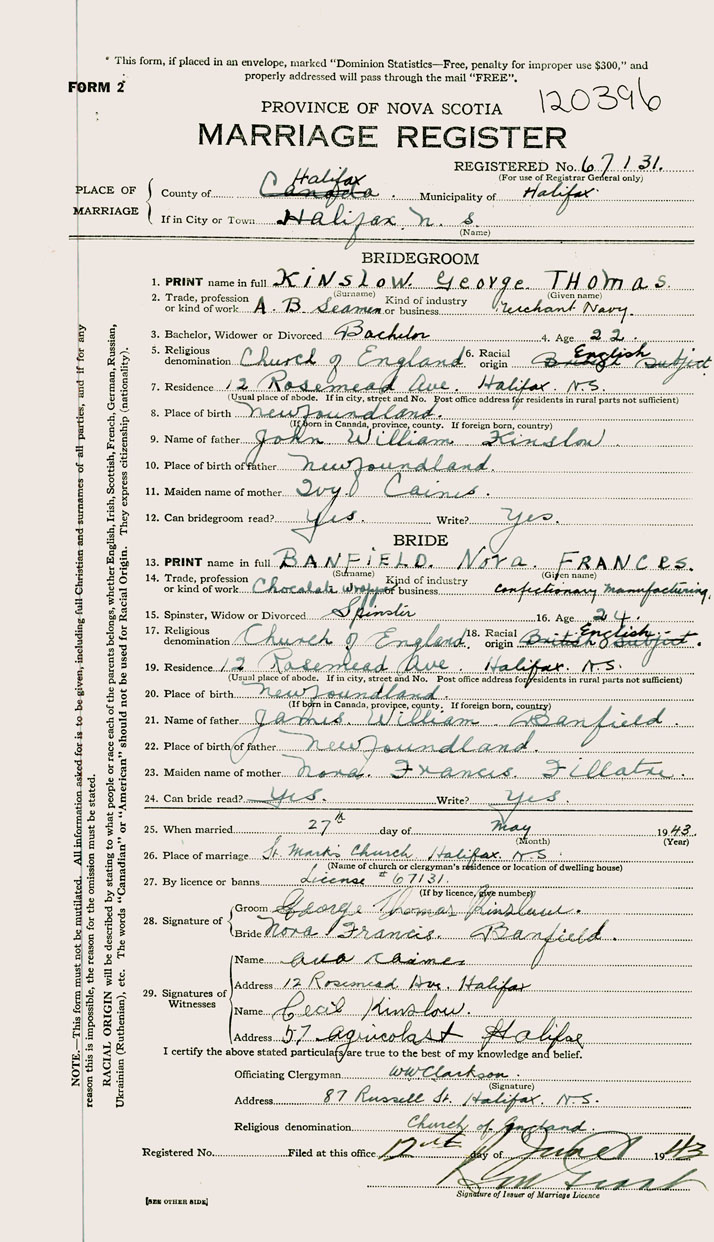 * This form, if placed in an envelope, marked "Dominion Statistics—Free, penalty for improper use $300," and
properly addressed will pass through the mail "FREE".
FORM 2
120396
PROVINCE OF NOVA SCOTIA
MARRIAGE REGISTER
REGISTERED No. 67131.
(For use of Registrar General only)
PLACE OF MARRIAGE
County of Canada Halifax. Municipality of Halifax
If in City or Town Halifax N. S.
(Name)
BRIDEGROOM
1. PRINT name in full KINSLOW. George THOMAS.
(Surname) (Given name)
2. Trade, profession or kind of work A. B. Seaman Kind of industry or business Merchant Navy.
3. Bachelor, Widower or Divorced Bachelor 4. Age 22.
5. Religious denomination Church of England 6. Racial origin British Subject English
7. Residence 12 Rosemead Ave. Halifax. N.S.
(Usual place of abode. If in city, street and No. Post office address for residents in rural parts not sufficient)
8. Place of birth Newfoundland.
(If born in Canada, province, county. If foreign born, country)
9. Name of father John William Kinslow.
10. Place of birth of father Newfoundland.
11. Maiden name of mother Ivy Caines.
12. Can bridegroom read? Yes. Write? Yes.
BRIDE
13. PRINT name in full BANFIELD. Nova. FRANCES.
(Surname) (Given name)
14. Trade, profession or kind of work Chocolate wrapper Kind of industry or business confectionary manufacturing.
15. Spinster, Widow or Divorced Spinster 16. Age 24.
17. Religious denomination Church of England. 18. Racial origin British Subject. English
19. Residence 12 Rosemead Ave. Halifax. N.S.
(Usual place of abode. If in city, street and No. Post office address for residents in rural parts not sufficient)
20. Place of birth Newfoundland.
(If born in Canada, province, county. If foreign born, country)
21. Name of father James William Banfield.
22. Place of birth of father Newfoundland.
23. Maiden name of mother Nora. Francis. Fillatre.
24. Can bride read? Yes. Write? Yes.
25. When married 27th day of May 1943.
(Month) (Year)
26. Place of marriage St. Mark's Church, Halifax. N.S.
(Name of church or clergyman's residence or location of dwelling house)
27. By licence or banns License # 67131.
(If by licence, give number)
28. Signature of Groom George Thomas Kinslow.
Bride Nova Francis. Banfield.
29. Signatures of Witnesses
Name Caines
Address 12 Rosemead Ave. Halifax
Name Cecil Kinslow.
Address 57 Agricola st Halifax
I certify the above stated particulars are true to the best of my knowledge and belief.
Officiating Clergyman WW Clarkson.
(Signature)
Address 87 Russell St. Halifax. N.S.
Religious denomination Church of England.
Registered No. Filed at this office 12 day of June 1943
Signature of Issuer of Marriage Licence
[SEE OTHER SIDE]
NOTE.—This form must not be mutilated. All information asked for is to be given, including full Christian and surnames of all parties, and if for any
reason this is impossible, the reason for the omission must be stated.
RACIAL ORIGIN will be described by stating to what people or race each of the parents belongs, whether English, Irish, Scottish, French, German, Russian,
Ukrainian (Ruthenian), etc. The words "Canadian" or "American" should not be used for Racial Origin. They express citizenship (nationality).